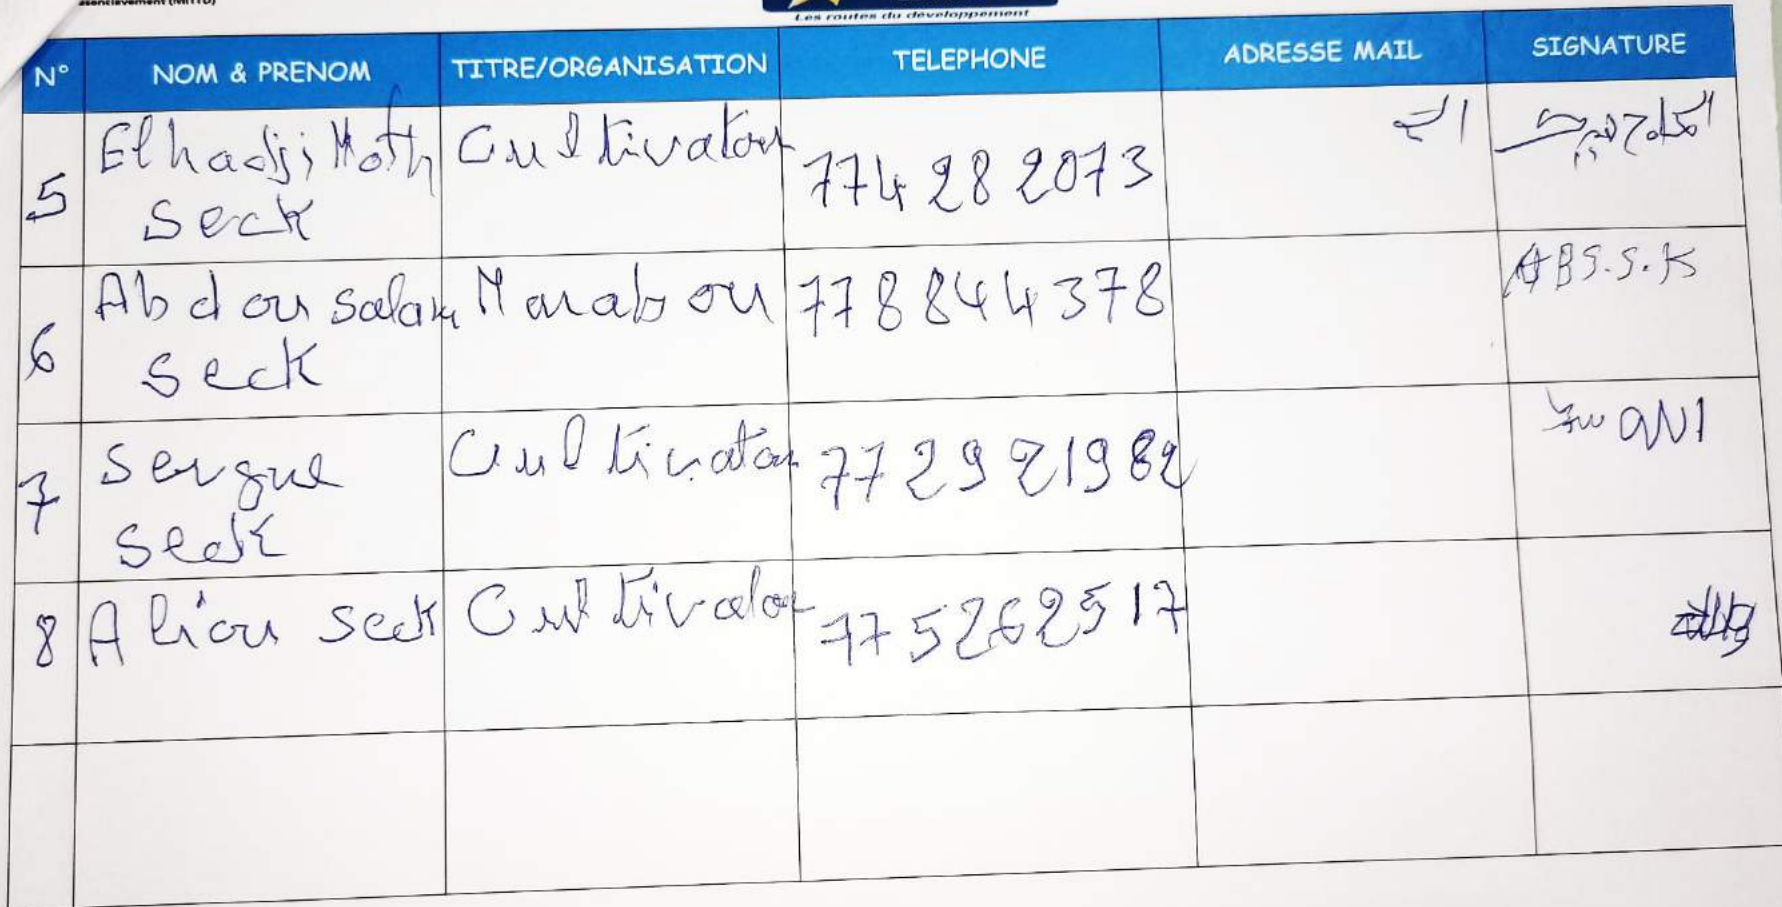 Les routes du développement
N° NOM & PRENOM TITRE/ORGANISATION TELEPHONE ADRESSE MAIL SIGNATURE
5 Elhadji Moth Cultivatou 774 28 2073
Seck
6 Abdou salam Marabou 778844378 ABS.S.K
Seck
7 Sergue Cultivatou 772921982
Seck
8 Aliou seck Cultivatou 775262517